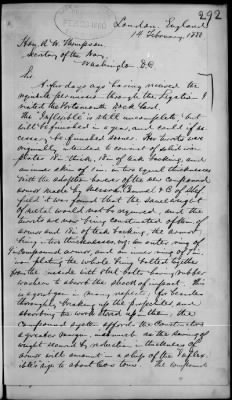 292
London, England
14 February, 1880
Hon. R. W. Thompson,
Secretary of the Navy,
Washington D.C.
Sir
A few days ago having received the
requisite permission through the Legation I
visited the Portsmouth Dock Yard.
The "Inflexible" is still incomplete, but
will be finished in a year, and could if ne-
cessary, be finished sooner. Her turrets were
originally intended to consist of solid iron
plates 18 in. thick, 18 in. of teak backing, and
an inner skin of 1 in. in two equal thicknesses
with the adoption however of the new compound
armor made by Messrs. Cammell & Co. of Shef-
field it was found that the same weight
of metal would not be required, and the
turrets are now being constructed of
armor and 18 in. of teak backing, the armor
being in two thicknesses, an outer ring of
9 in compound armor, and an inner ring of 7 in.
iron plating the whole being bolted together
from the inside with steel bolts having rubber
washers to absorb the shock of impact. This
is a great gain in many respects, for besides
thoroughly breaking up the projectiles and
absorbing the work stored up in them, the
compound system affords the Constructors
a greater margin, inasmuch as the saving of
weight secured by reduction in thickness of
armor will amount in a ship of the Inflex-
ible's type to about two tons. The compound